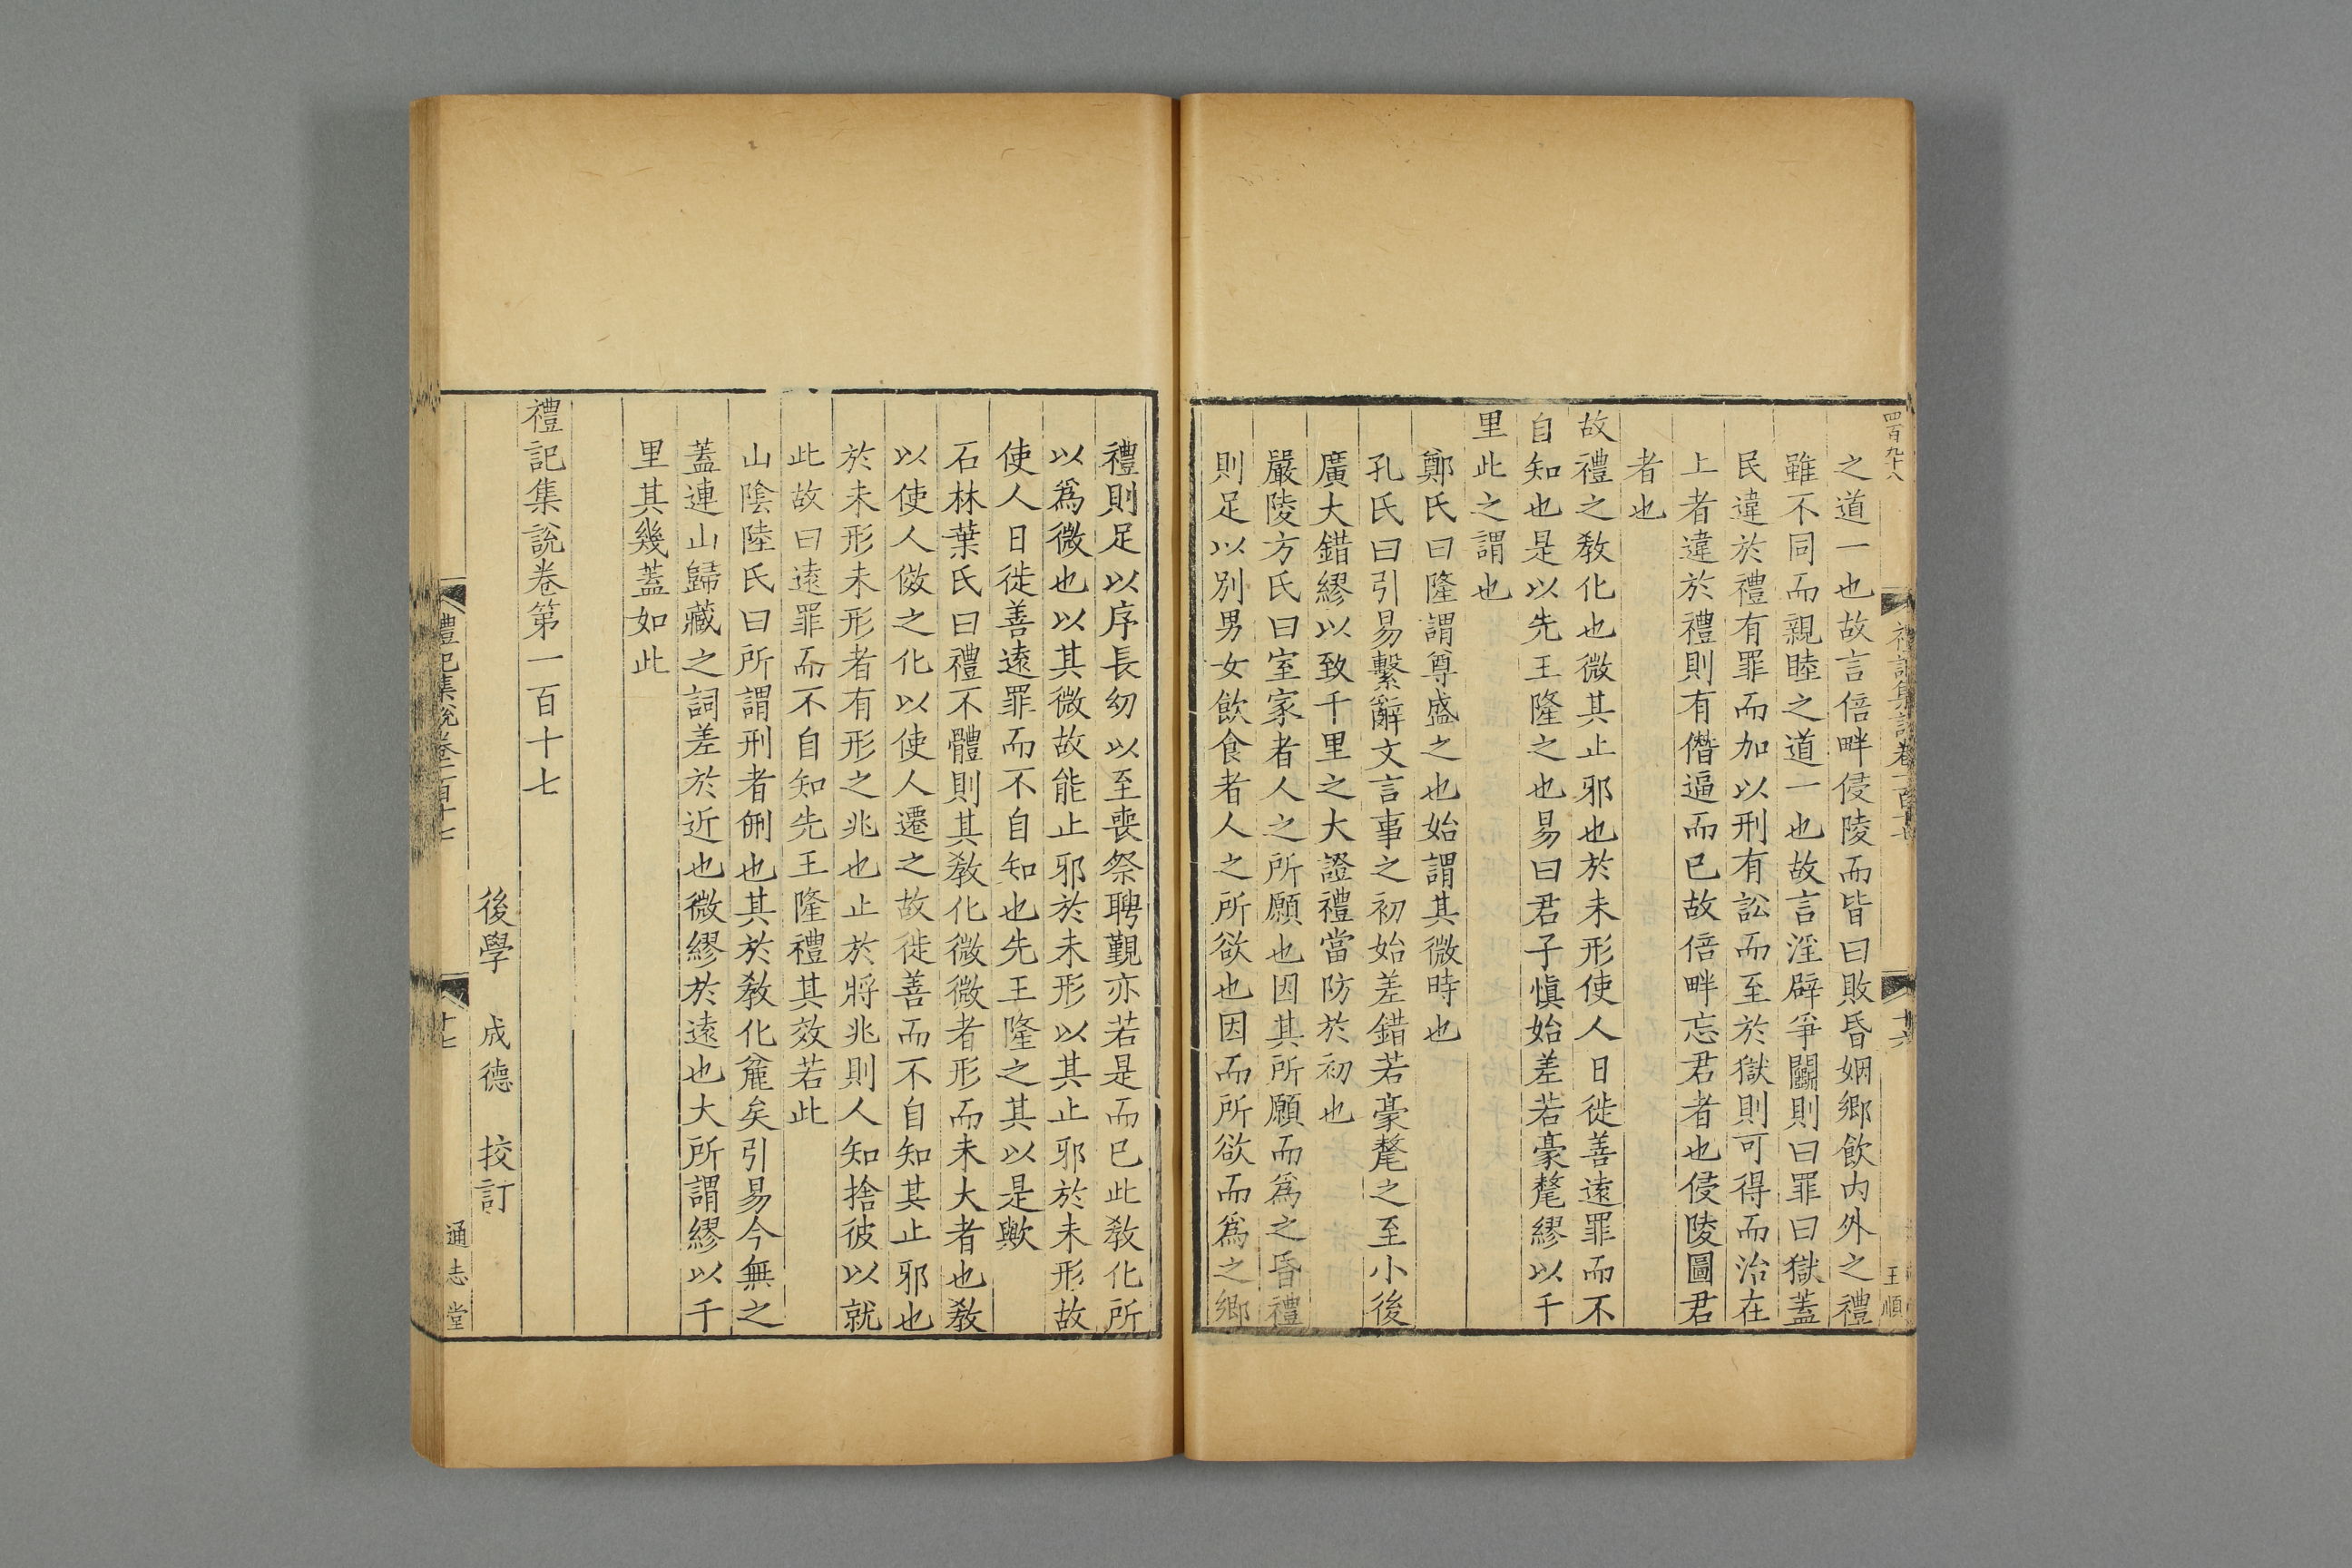 四百九十八
之道一也故言倍畔侵陵而皆曰敗昏姻鄉飲内外之禮
雖不同而親睦之道一也故言淫辟爭鬭則曰罪曰獄蓋
民違於禮有罪而加以刑有訟而至於獄則可得而治在
上者違於禮則有僭逼而已故倍畔忘君者也侵陵圖君
者也
故禮之敎化也微其止邪也於未形使人日徙善遠罪而不
自知也是以先王隆之也易曰君子愼始差若豪氂繆以千
里此之謂也
鄭氏曰隆謂尊盛之也始謂其微時也
孔氏曰引易繫辭文言事之初始差錯若豪氂之至小後
廣大錯繆以致千里之大證禮當防於初也
嚴陵方氏曰室家者人之所願也因其所願而爲之昏禮
則足以別男女飲食者人之所欲也因而所欲而爲之鄉
王順
禮則足以序長幼以至喪祭聘覲亦若是而已此敎化所
以爲微也以其微故能止邪於未形以其止邪於未形故
使人日徙善遠罪而不自知也先王隆之其以是歟
石林葉氏曰禮不體則其敎化微微者形而未大者也敎
以使人傚之化以使人遷之故徙善而不自知其止邪也
於未形未形者有形之兆也止於將兆則人知捨彼以就
此故曰遠罪而不自知先王隆禮其效若此
山陰陸氏曰所謂刑者侀也其於敎化麄矣引易今無之
蓋連山歸藏之詞差於近也微繆於遠也大所謂繆以千
里其幾蓋如此
禮記集說卷第一百十七
後學 成德 挍訂
禮記集說卷一百十七
十七
通志堂